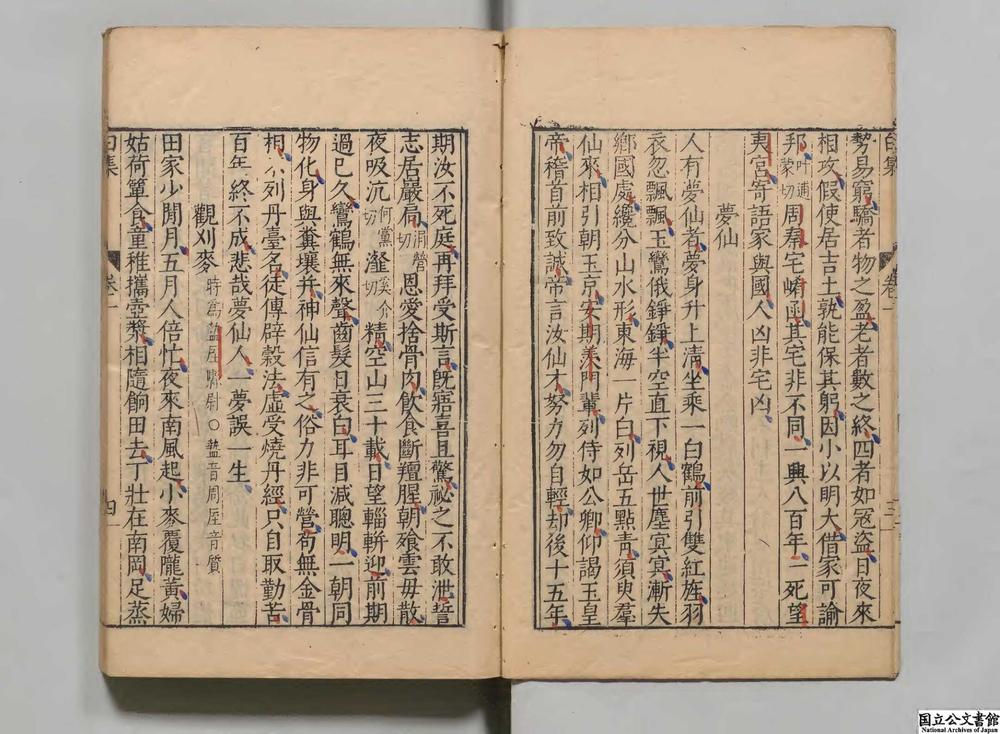 勢易窮驕者物之盈老者數之終四者如寇盜日夜來
相攻假使居吉土孰能保其躬因小以明大借家可諭
邦叶通蒙切周秦宅崤函其宅非不同一興八百年一死望
夷宮寄語家與國人凶非宅凶
夢仙
人有夢仙者夢身升上清坐乘一白鶴前引雙紅旌羽
衣忽飄飄玉鸞俄錚錚半空直下視人世塵冥冥漸失
鄉國處纔分山水形東海一片白列岳五點青須臾羣
仙來相引朝玉京安期羨門輩列侍如公卿仰謁玉皇
帝稽首前致誠帝言汝仙才努力勿自輕却後十五年
期汝不死庭再拜受斯言旣寤喜且驚祕之不敢泄誓
志居嚴扃涓營切恩愛捨骨肉飲食斷羶腥朝飡雲毋散
夜吸沆何黨切瀣奚介切精空山三十載日望輜軿迎前期
過已久鸞鶴無來聲齒髮日衰白耳目減聰明一朝同
物化身與糞壤并神仙信有之俗力非可營苟無金骨
相不列丹臺名徒傳辟穀法虛受燒丹經只自取勤苦
百年終不成悲哉夢仙人一夢誤一生
觀刈麥時爲盩厔縣尉○盩音周厔音質
田家少閒月五月人倍忙夜來南風起小麥覆隴黃婦
姑荷簞食童稚攜壺漿相隨餉田去丁壯在南岡足蒸
白集
卷一
三
白集
卷一
四
国立公文書館
National Archives of Japan